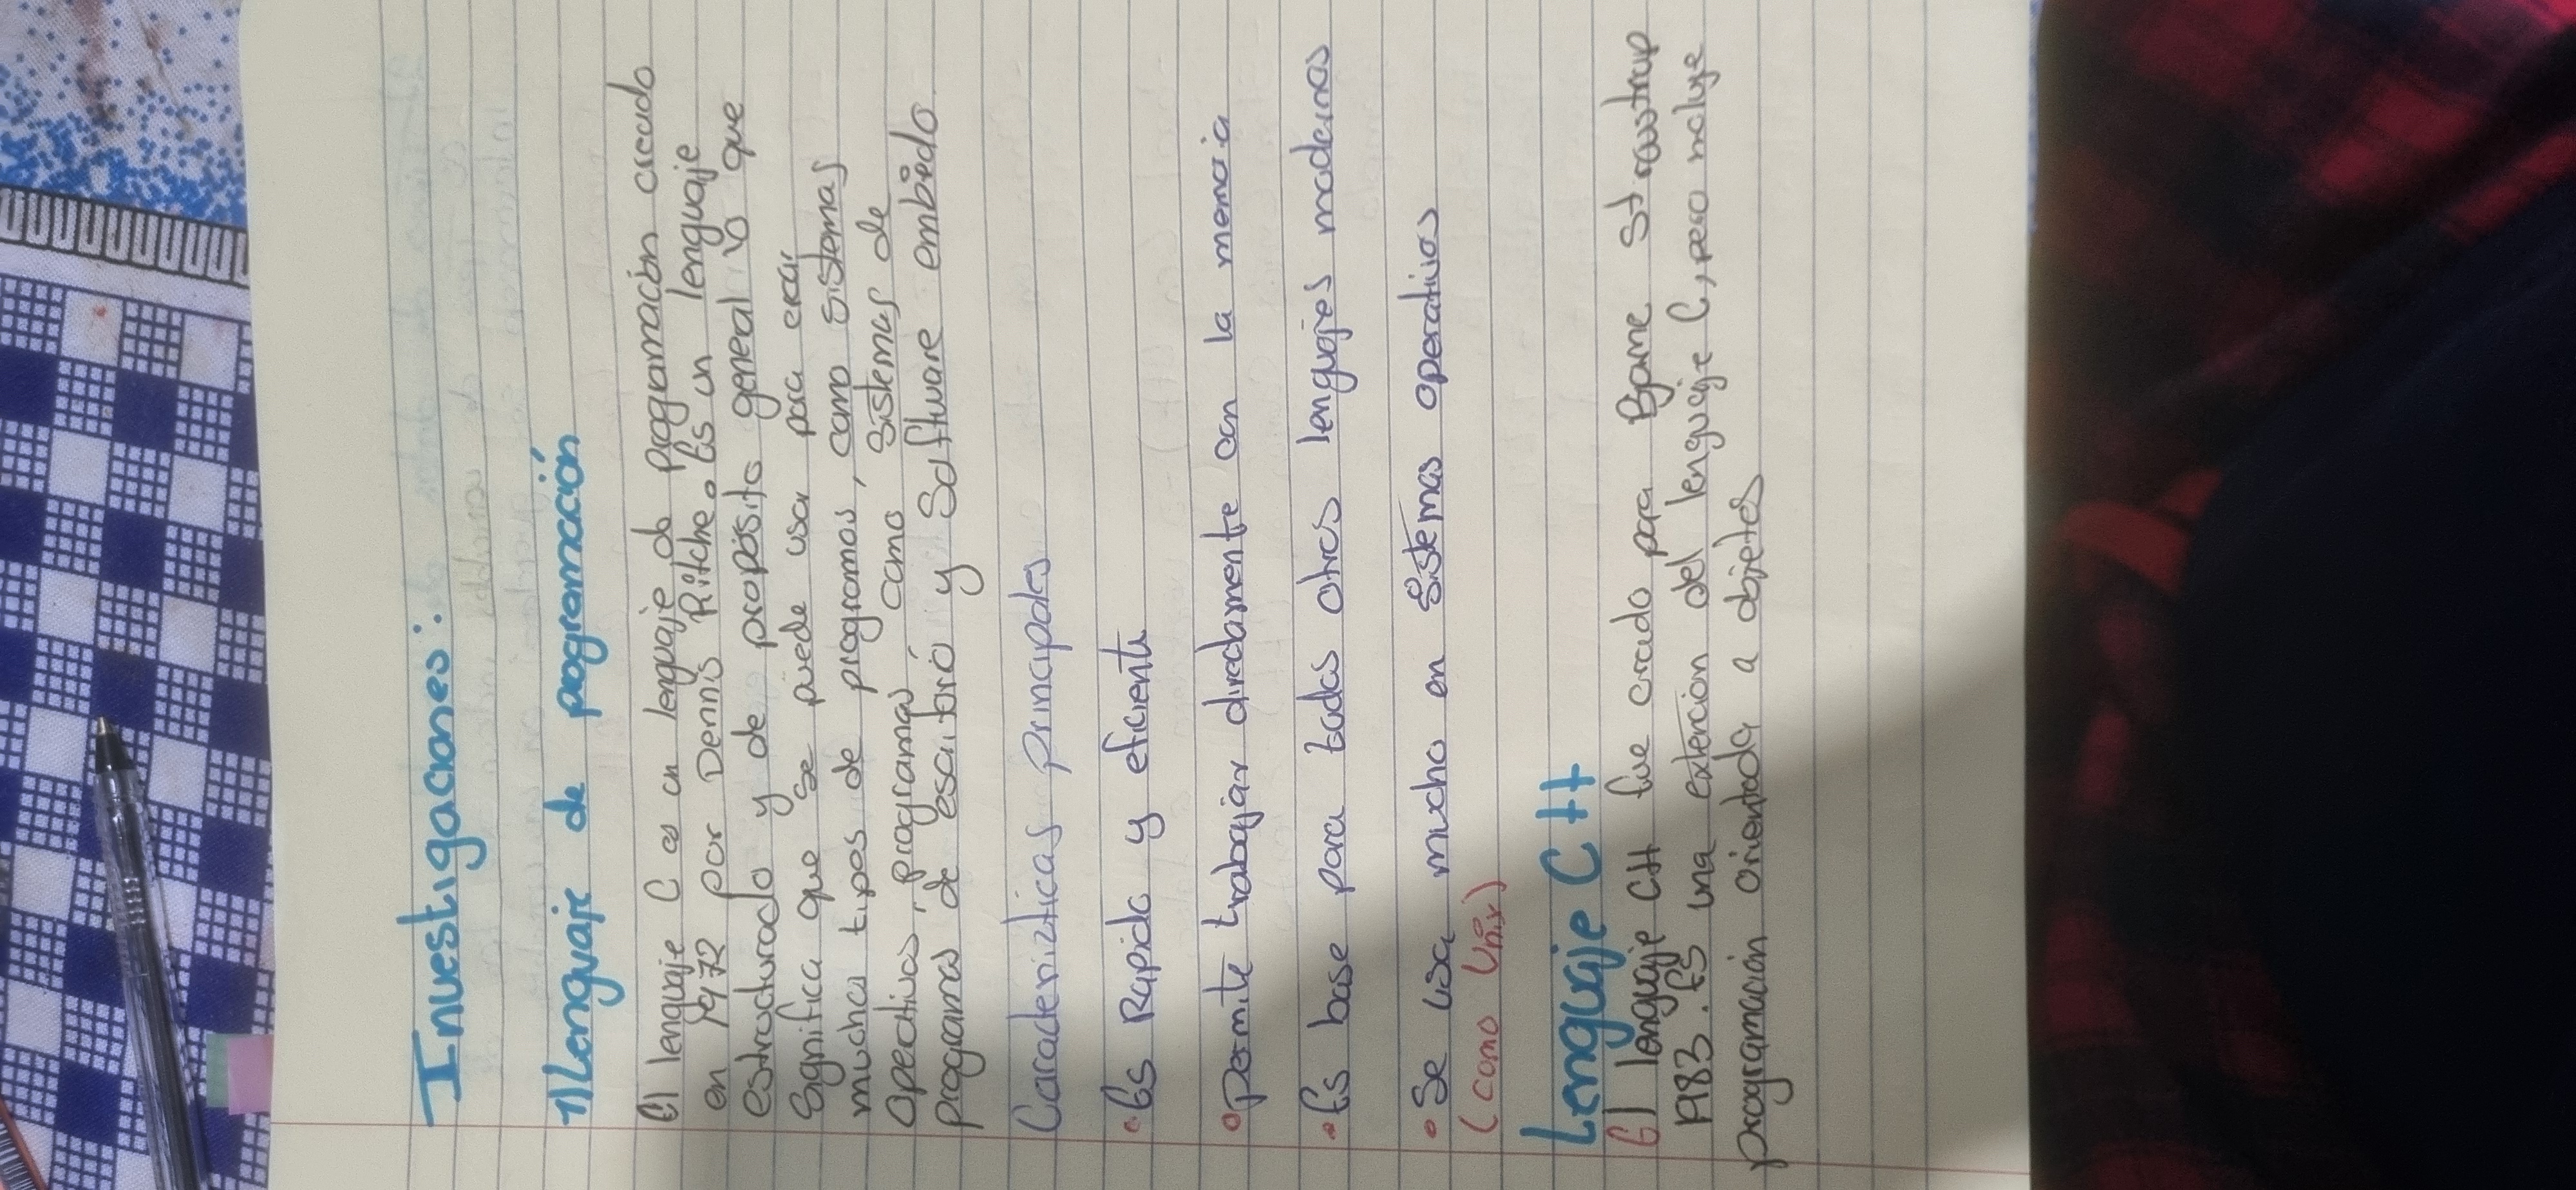 Investigaciones:
1) Lenguaje de programación
El lenguaje C es un lenguaje de programación creado
en 1972 por Dennis Ritche. Es un lenguaje
estructurado y de propósito general lo que
significa que se puede usar para crear
muchos tipos de programas, como sistemas
operativos, programas como sistemas de
programas de escritorio y Software embebido
Caracterizticas principales
• Es Rapido y eficiente
• permite trabajar directamente con la memoria
• Es base para todos otros lenguajes modernos
• Se usa mucho en sistemas operativos
(como Unix)
Lenguaje C++
El lenguaje C++ fue creado para Bjarne Stroustrup
1983. Es una extencion del lenguaje C, pero incluye
programación orientada a objetos